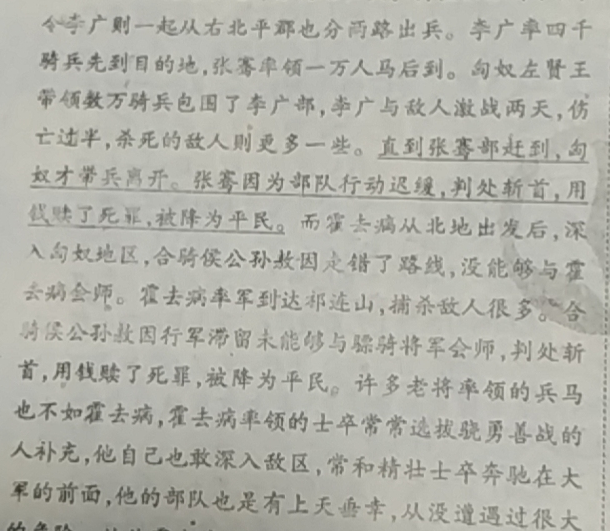 令李广则一起从右北平郡也分两路出兵。李广率四千
骑兵先到目的地,张骞率领一万人马后到。匈奴左贤王
带领数万骑兵包围了李广部,李广与敌人激战两天,伤
亡过半,杀死的敌人则更多一些。直到张骞部赶到,匈
奴才带兵离开。张骞因为部队行动迟缓,判处斩首,用
钱赎了死罪,被降为平民。而霍去病从北地出发后,深
入匈奴地区,合骑侯公孙敖因走错了路线,没能够与霍
去病会师。霍去病率军到达祁连山,捕杀敌人很多。合
骑侯公孙敖因行军滞留未能够与骠骑将军会师,判处斩
首,用钱赎了死罪,被降为平民。许多老将率领的兵马
也不如霍去病,霍去病率领的士卒常常选拔骁勇善战的
人补充,他自己也敢深入敌区,常和精壮士卒奔驰在大
军的前面,他的部队也是有上天垂幸,从没遭遇过很大
的危险